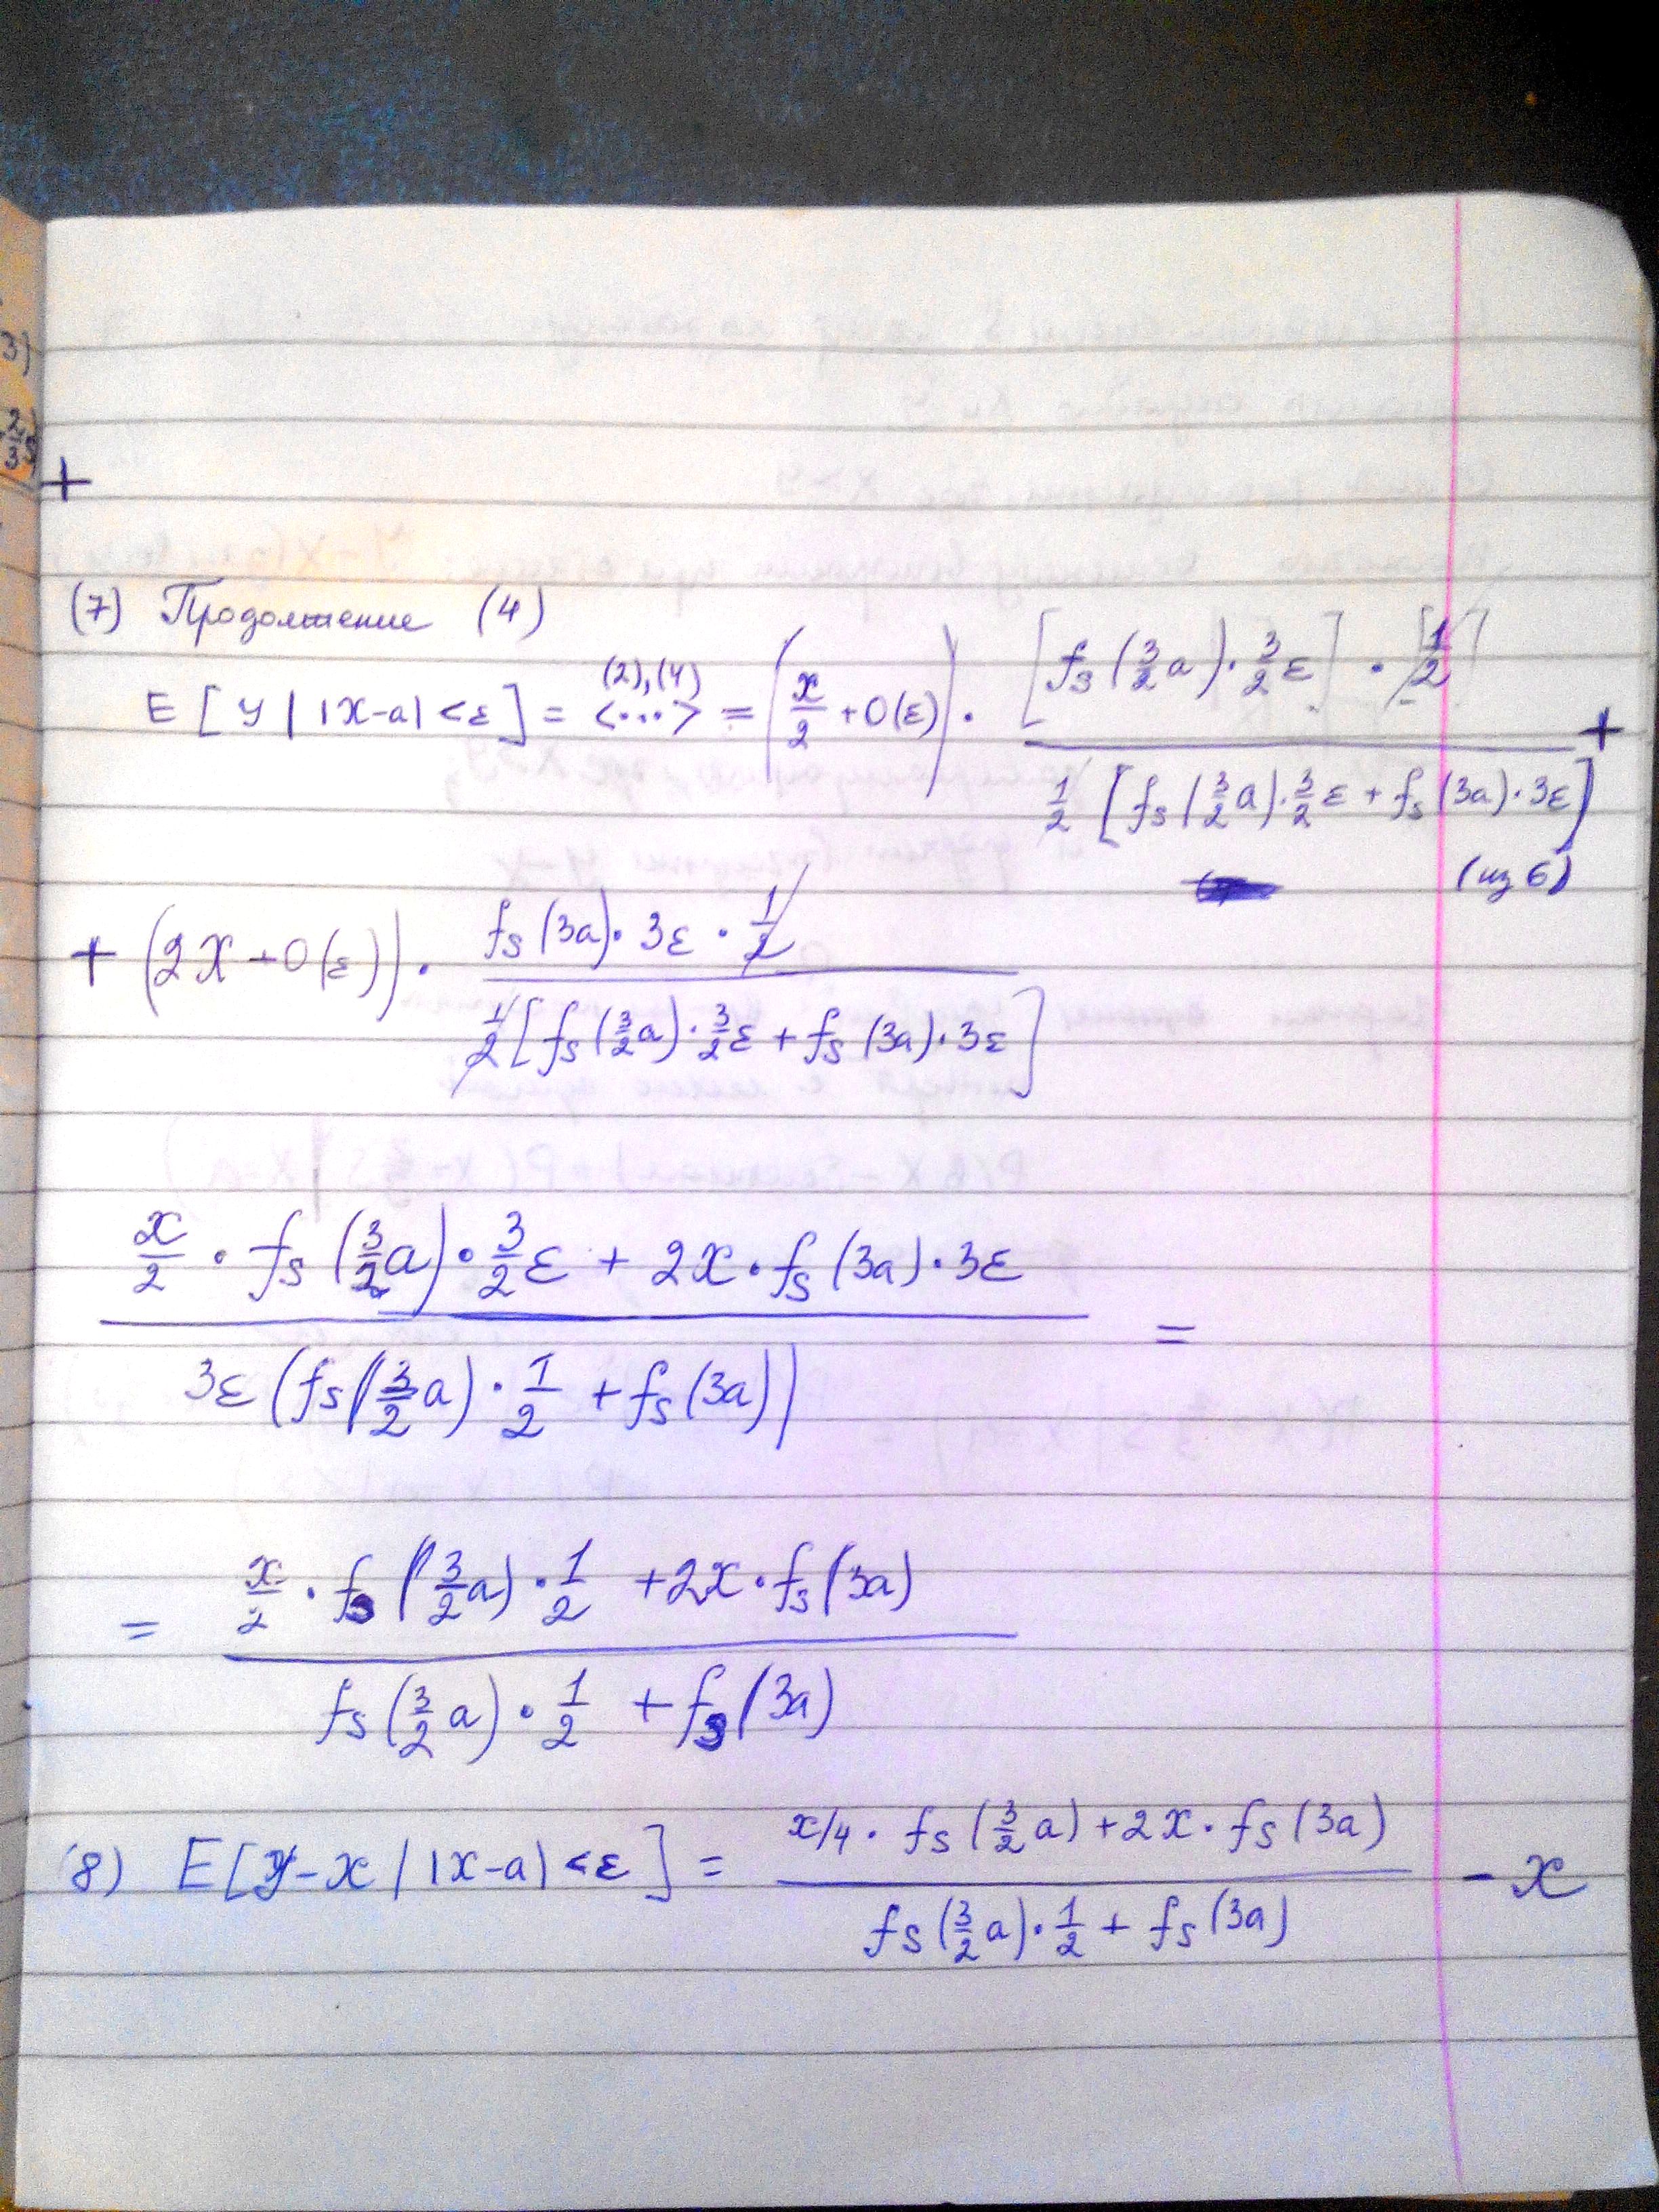 3)
2/3 S
+
(7) Продолжение (4)
E [ y | |x-a| < ε ] = <...> (2),(4) = (x/2 + O(ε)) · [fs (3/2 a) · 3/2 ε] · [1/2] / 1/2 [fs (3/2 a) · 3/2 ε + fs (3a) · 3ε] +
(из 6)
+ (2x + O(ε)) · fs (3a) · 3ε · 1/2 / 1/2 [fs (3/2 a) · 3/2 ε + fs (3a) · 3ε]
x/2 · fs (3/2 a) · 3/2 ε + 2x · fs (3a) · 3ε / 3ε (fs (3/2 a) · 1/2 + fs (3a)) =
= x/2 · fs (3/2 a) · 1/2 + 2x · fs (3a) / fs (3/2 a) · 1/2 + fs (3a)
(8) E [y - x | |x-a| < ε ] = x/4 · fs (3/2 a) + 2x · fs (3a) / fs (3/2 a) · 1/2 + fs (3a) - x